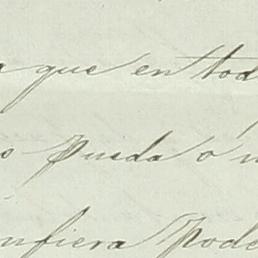 a que en tod
o pueda o n
nfiera Pode